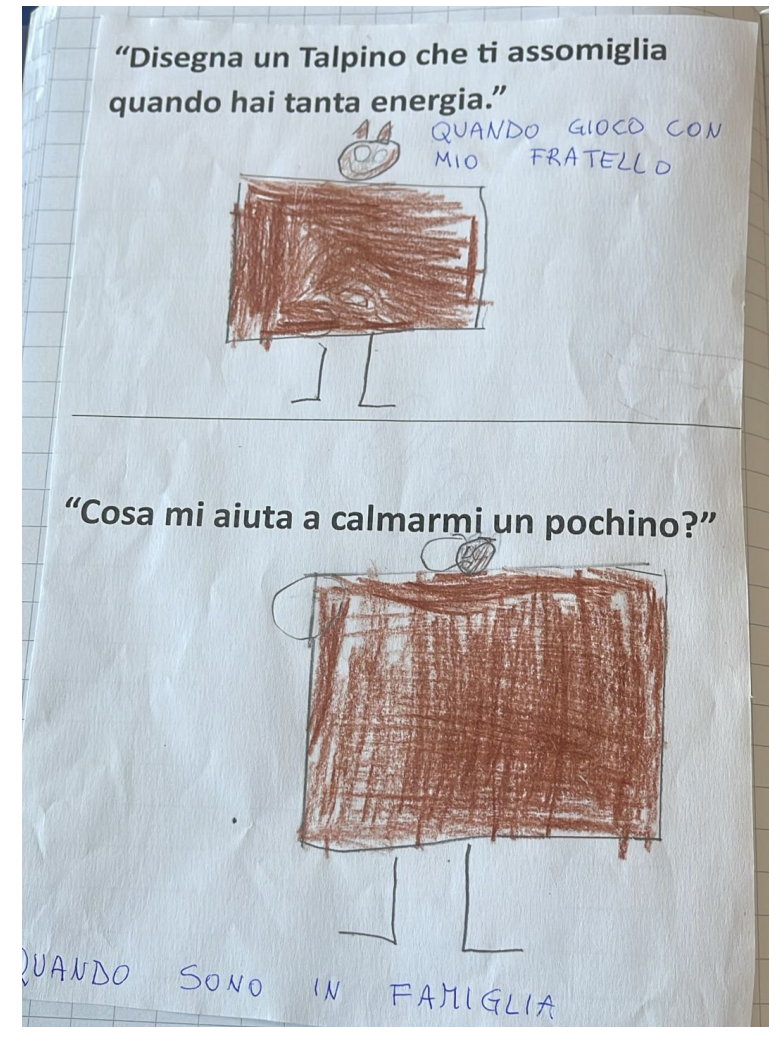 “Disegna un Talpino che ti assomiglia
quando hai tanta energia.”
QUANDO GIOCO CON
MIO FRATELLO
“Cosa mi aiuta a calmarmi un pochino?”
QUANDO SONO IN FAMIGLIA